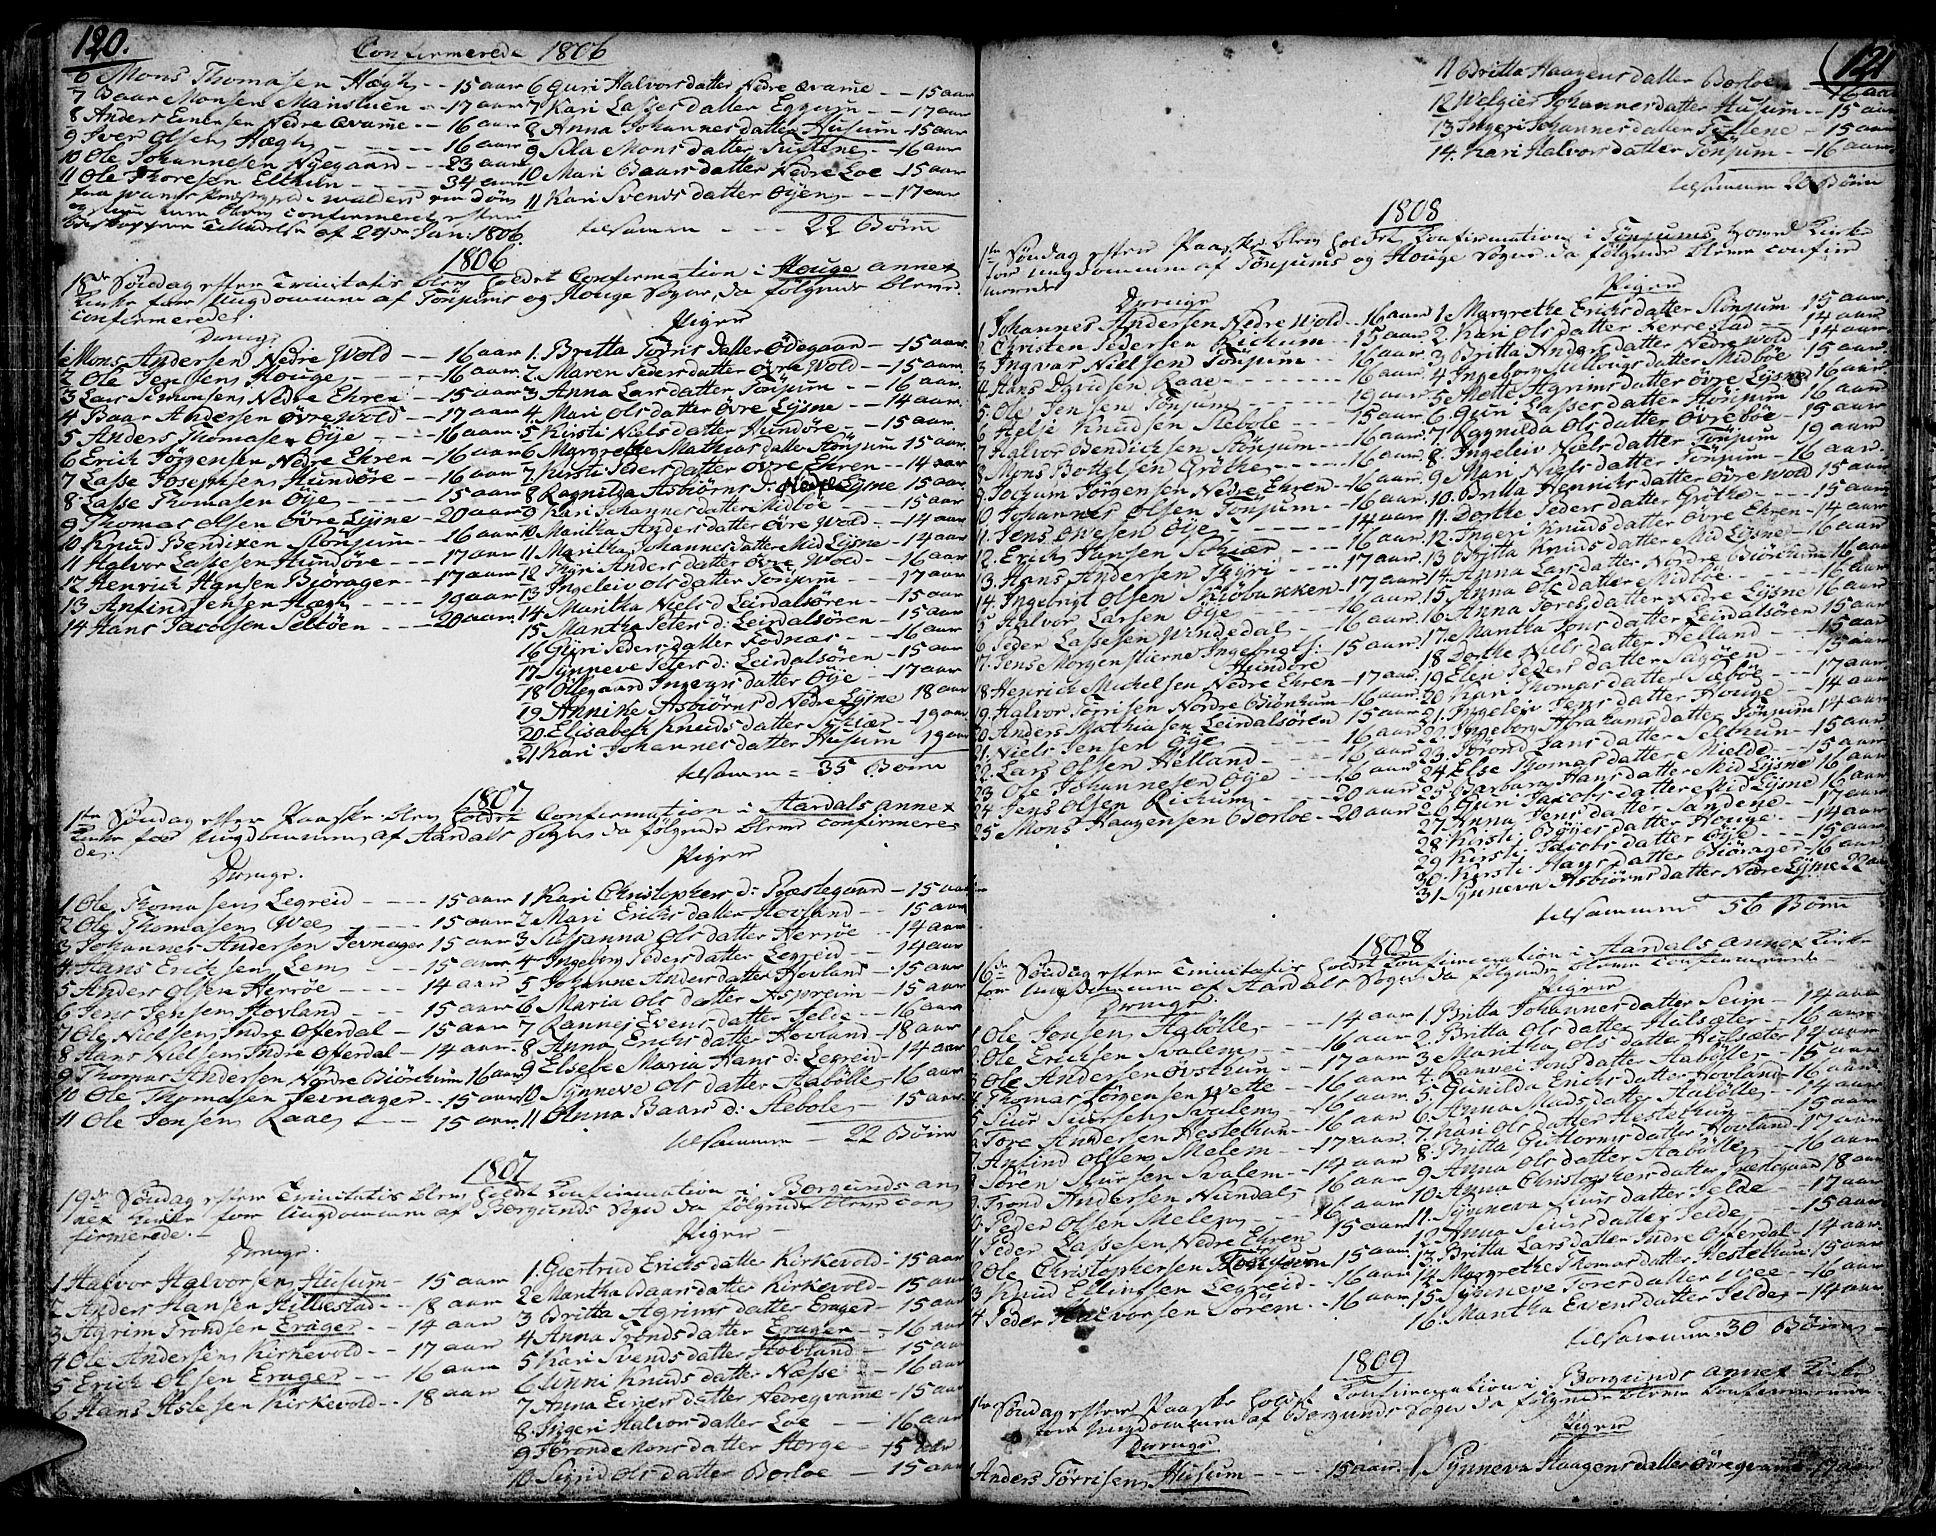 120.
Confirmerede 1806
6 Mons Thomasen Hægh - - 15 aar
7 Baar Monsen Manstuen - - 17 aar
8 Anders Nedre Qvame - - 16 aar
9 Iver Olsen Hægh - - - 16 aar
10 Ole Johannesen Nyegaard - - 23 aar
11 Ole Thoresen - - - 34 aar
confirmeret efter
Tilladelse af 29de Jan: 1806.
6 Guri Halvorsdatter Nedre Qvame - - 15 aar
7 Kari Lassesdatter Eggum - - 17 aar
8 Anna Johannesdatter Husum - 15 aar
9 Sila Monsdatter - 16 aar
10 Mari Baarsdatter Nedre Loe - 15 aar
11 Kari Svendsdatter Øyen - - 17 aar
tilsammen - - - 22 Børn
1806
18de Søndag efter Trinitatis blev holdet Confirmation i Houge annex
Kirke for Ungdommen af Tønjums og Houge Sogne, da følgende bleve
confirmerede.
Drenge
1 Mons Andersen Nedre Wold - - 16 aar
2 Ole Jensen Houge - - - 16 aar
3 Lars Simonsen Nedre Ehren - 15 aar
4 Baar Andersen Øvre Wold - - 17 aar
5 Anders Thomasen Øye - - - 16 aar
6 Erich Jørgensen Nedre Ehren - 16 aar
7 Lasse Josephsen Hundøre - - 16 aar
8 Lasse Thomasen Øye - - - 15 aar
9 Thomas Olsen Øvre Lysne - 20 aar
10 Knud Bendixen Stønjum - - 16 aar
11 Halvor Lassesen Hundøre - - 17 aar
12 Henrich Hansen Biørager - - 17 aar
13 Anfind Jensen Hægh - - - 19 aar
14 Hans Jacobsen Seltøen - - - 20 aar
Piger
1. Britta Tørris datter Ødegaar - - 15 aar
2. Maren Pedersdatter Øvre Wold - - 15 aar
3 Anna Larsdatter Tønjum - - 16 aar
4. Mari Olsdatter Øvre Lysne - - 14 aar
5 Kirsti Nielsdatter Hundøre - - 15 aar
6 Margrethe Mathiasdatter Stønjum 15 aar
7. Kirsti Pedersdatter Øvre Ehren - - 14 aar
8 Ragnilda Asbiørns d: Nedre Lysne 15 aar
9 Kari Johannesdatter Midbøe - - 15 aar
10 Maritha Andersdatter Øvre Wold - - 14 aar
11 Maritha Johannesdatter Mid Lysne - 14 aar
12 Andersdatter Øvre Wold - - 16 aar
13 Ingeleiv Olsdatter Tønjum - - 17 aar
14 Maritha Niels d Leirdalsøren - - 15 aar
15 Mantha Peters d: Leirdalsøren - 15 aar
16 Guri Pedersdatter Fodnæs - - 16 aar
17 Synneve Peters d: Leirdalsøren - 15 aar
18 Ollegaard Ingvarsdatter Øye - - 17 aar
19 Annike Asbiørns d Nedre Lysne 18 aar
20 Elisabeth Knudsdatter Skiær - 19 aar
21 Kari Johannesdatter Husum 19 aar
tilsammen = 35 Børn
1807
1ste Søndag efter Paaske blev holdt Confirmation i Aardals annex
Kirke for Ungdommen af Aardals Sogn, da følgende bleve confirmere
de.
Drenge.
1 Ole Thomasen Legreid - - - 15 aar
2 Ole Thomasen Wee - - - 15 aar
3 Johannes Andersen Jevnager 15 aar
4. Hans Erichsen Lem - - - 15 aar
5 Anders Olsen Herrøe - - - 14 aar
6 Jens Jensen Hovland - - - 15 aar
7 Ole Nielsen Indre Oferdal - - 15 aar
8 Hans Nielsen Indre Oferdal - 14 aar
9 Thomas Andersen Nordre Biørchum 16 aar
10 Ole Thomasen Jevnager - - 15 aar
11 Ole Jensen Raae - - 15 aar
Piger
1 Kari Christophers d: Præstegaard - 15 aar
2 Mari Erichsdatter Hovland - - 15 aar
3 Susanna Olsdatter Herrøe - - 14 aar
4 Ingeborg Pedersdatter Legreid - - 14 aar
5 Johanne Andersdatter Hovland - 15 aar
6 Maria Olsdatter Aspreim - - 15 aar
7 Rannej Evensdatter Selde - - 16 aar
8 Anna Erichsdatter Hovland - 18 aar
9 Elsebe Maria Hans d: Legreid - 14 aar
10 Synneve Olsdatter Aabølle - 16 aar
11 Anna Baars d: Stebole - - 15 aar
tilsammen - 22 Børn
1807
19de Søndag efter Trinitatis blev holdt Confirmation i Borgunds an
nex Kirke for Ungdommen af Borgunds Sogn da følgende bleve con
firmerede. -
Drenge.
1 Halvor Halvorsen Husum - 15 aar
2 Anders Hansen Hillestad - - 18 aar
3 Agrim Trondsen Erager - - 14 aar
4 Ole Andersen Kirkevold - - 17 aar
5 Erich Olsen Erager - - 16 aar
6 Hans Aslesen Kirkevold - - 18 aar
Piger -
1. Giertrud Erichsdatter Kirkevold - 15 aar
2 Mantha Baarsdatter Kirkevold - 15 aar
3 Britta Agrimsdatter Erager - 15 aar
4 Anna Trondsdatter Erager - - 16 aar
5 Kari Svendsdatter Hovland - - 15 aar
6 Unni Knudsdatter Næsse - - 16 aar
7 Anna Einersdatter Nedre Qvame - 15 aar
8. Ingeri Halvorsdatter Loe - - 16 aar
9 Tøronde Monsdatter Horge - - 15 aar
10 Sigrid Olsdatter Borloe - - 15 aar
121
11 Britta Haagensdatter Borloe - 16 aar
12 Welgier Johannesdatter Husum - - 15 aar
13 Ingeri Johannesdatter - - 15 aar
14. Kari Halvorsdatter Tønjum - - 16 aar
tilsammen 20 Børn
1808
1ste Søndag efter Paaske blev holdt Confirmation i Tønjums Hoved Kirke
for Ungdommen af Tønjums og Houge Sogne da følgende bleve confir
merede
Drenge
1 Johannes Andersen Nedre Wold - - 16 aar
2 Christen Pedersen Richum - - 15 aar
3 Ingvar Nielsen Tønjum - - 16 aar
4 Hans Davidsen Raae - - - 16 aar
5. Ole Jensen Tønjum - - - 19 aar
6 Helje Knudsen Stebole - - - 15 aar
7 Halvor Bendichsen Stønjum - - 16 aar
8 Mons Bottelsen Grøthe - - - 16 aar
9 Jochum Jørgensen Nedre Ehren - 16 aar
10. Johannes Olsen Tønjum - - 16 aar
11. Jens Ovesen Øye - - - 14 aar
12. Erich Jansen Skiær - - - 16 aar
13. Hans Andersen - - - 17 aar
14. Ingebrigt Olsen Skiøbakken - 17 aar
15 Halvor Larsen Øye - - - 16 aar
16 Peder Lassesen Windedal - - 16 aar
17. Jens Morgenstierne Ingebrigts: - 15 aar
Hundøre
18 Henrich Michelsen Nedre Ehren - 17 aar
19. Halvor Tørrisen Nordre Biørchum - 16 aar
20 Anders Mathiasen Leirdalsøren 15 aar
21. Niels Jensen Øye - - - 16 aar
22. Lars Olsen Helland - - - 16 aar
23 Ole Johannesen Øye - - - 16 aar
24 Jens Olsen Richum - - - 20 aar
25 Mons Haagensen Borloe - 20 aar
Piger
1 Margrethe Erichsdatter Stønjum 15 aar
2. Kari Olsdatter Ferrestad - - 14 aar
3 Britta Andersdatter Nedre Wold - 14 aar
4 Ingeborg datter Midbøe 15 aar
5 Mette Agrimsdatter Øvre Lysne 16 aar
6 Guri Lassesdatter Stønjum 16 aar
7 Ragnilda Olsdatter Øvrebøe - 15 aar
8. Ingeleiv datter Tønjum 19 aar
9 Mari Nielsdatter Tønjum - 16 aar
10. Britta Henrichsdatter Øvre Wold 15 aar
11. Dorthe Pedersdatter Grøthe - - 15 aar
12. Ingeri Knudsdatter Øvre Ehren - 14 aar
13 Britta Knudsdatter Mid Lysne - 16 aar
14. Anna Larsdatter Nordre Biørchum 16 aar
15 Anna Olsdatter Midbøe - - 16 aar
16 Anna Toresdatter Nedre Lysne 16 aar
17. Mantha Jonsdatter Leirdalsøren 15 aar
18 Dorthe Nielsdatter Helland - - 15 aar
19 Elen Pedersdatter Sagøen - - 15 aar
20 Kari Thomasdatter Sæbøe - - 17 aar
21. Ingeleiv Jensdatter Houge - - 14 aar
22. Ingeborg Abrahamsdatter Tønjum 14 aar
23. Tørond Jansdatter Seltun - - 15 aar
24 Else Thomasdatter Mielde - - 15 aar
25 Barbara Hansdatter Mid Lysne 16 aar
26 Guri Jacobsdatter Mid Lysne 16 aar
27 Anna Jensdatter Sandene - - 17 aar
28 Kirsti Bøyesdatter Houge - - 14 aar
29 Kirsti Jacobsdatter Øye - - 15 aar
30 Kirsti Hansdatter Biørager - 16 aar
31 Synneva Asbiørnsdatter Nedre Lysne 22 aar
tilsammen 56 Børn
1808
16de Søndag efter Trinitatis holdt Confirmation i Aardals annex Kirke
for Ungdommen af Aardals Sogn da følgende bleve confirmerede
Drenge
1 Ole Jonsen Aabølle - - - 14 aar
2 Ole Erichsen Svalem - - - 16 aar
3 Ole Andersen Øvsthun - - 17 aar
4 Thomas Jørgensen Wette - - 16 aar
5 Siur Siursen Svalem - - 16 aar
6 Tore Andersen Hestethun - - 16 aar
7. Anfind Olsen Melem - - - 17 aar
8 Søren Siursen Svalem - - 14 aar
9 Trond Andersen Nundal - - 16 aar
10. Peder Olsen Melem - - - 16 aar
11 Peder Lassesen Nedre Ehren 15 aar
12 Ole Christophersen Tønjum 15 aar
13 Knud Ellingsen Legreid - - 16 aar
14 Peder Halvorsen Sørem - - 16 aar
Piger
1. Britta Johannesdatter Seim - 14 aar
2 Britta Olsdatter Hulsæter - 16 aar
3 Mantha Olsdatter Hulsæter 14 aar
4. Ranvei Jonsdatter Aabølle - 15 aar
5 Gunilda Erichsdatter Hovland - 16 aar
6 Anna Madsdatter Aabølle - 14 aar
7. Kari Olsdatter Hestethun - - 15 aar
8 Britta Guttormsdatter Hovland 17 aar
9 Anna Olsdatter Aabølle - - 16 aar
10. Anna Christophersdatter Præstegaard 18 aar
11. Synneva Siursdatter Selde - - 17 aar
12 Anna Siursdatter Selde - - 15 aar
13 Britta Larsdatter Indre Oferdal - 14 aar
14 Margrethe Thomasdatter Hestethun 15 aar
15 Synneve Toresdatter Wee - - 16 aar
16. Mantha Evensdatter Selde - - 14 aar
tilsammen. 30 Børn
1809
1ste Søndag efter Paaske holdt Confirmation i Borgunds annex Kirke
for Ungdommen af Borgunds Sogn da følgende bleve confirmerede
Drenge
1 Anders Tørrisen Husum - - - 15 aar
Piger
1 Synneva Haagensdatter Øvre Qvame 17 aar